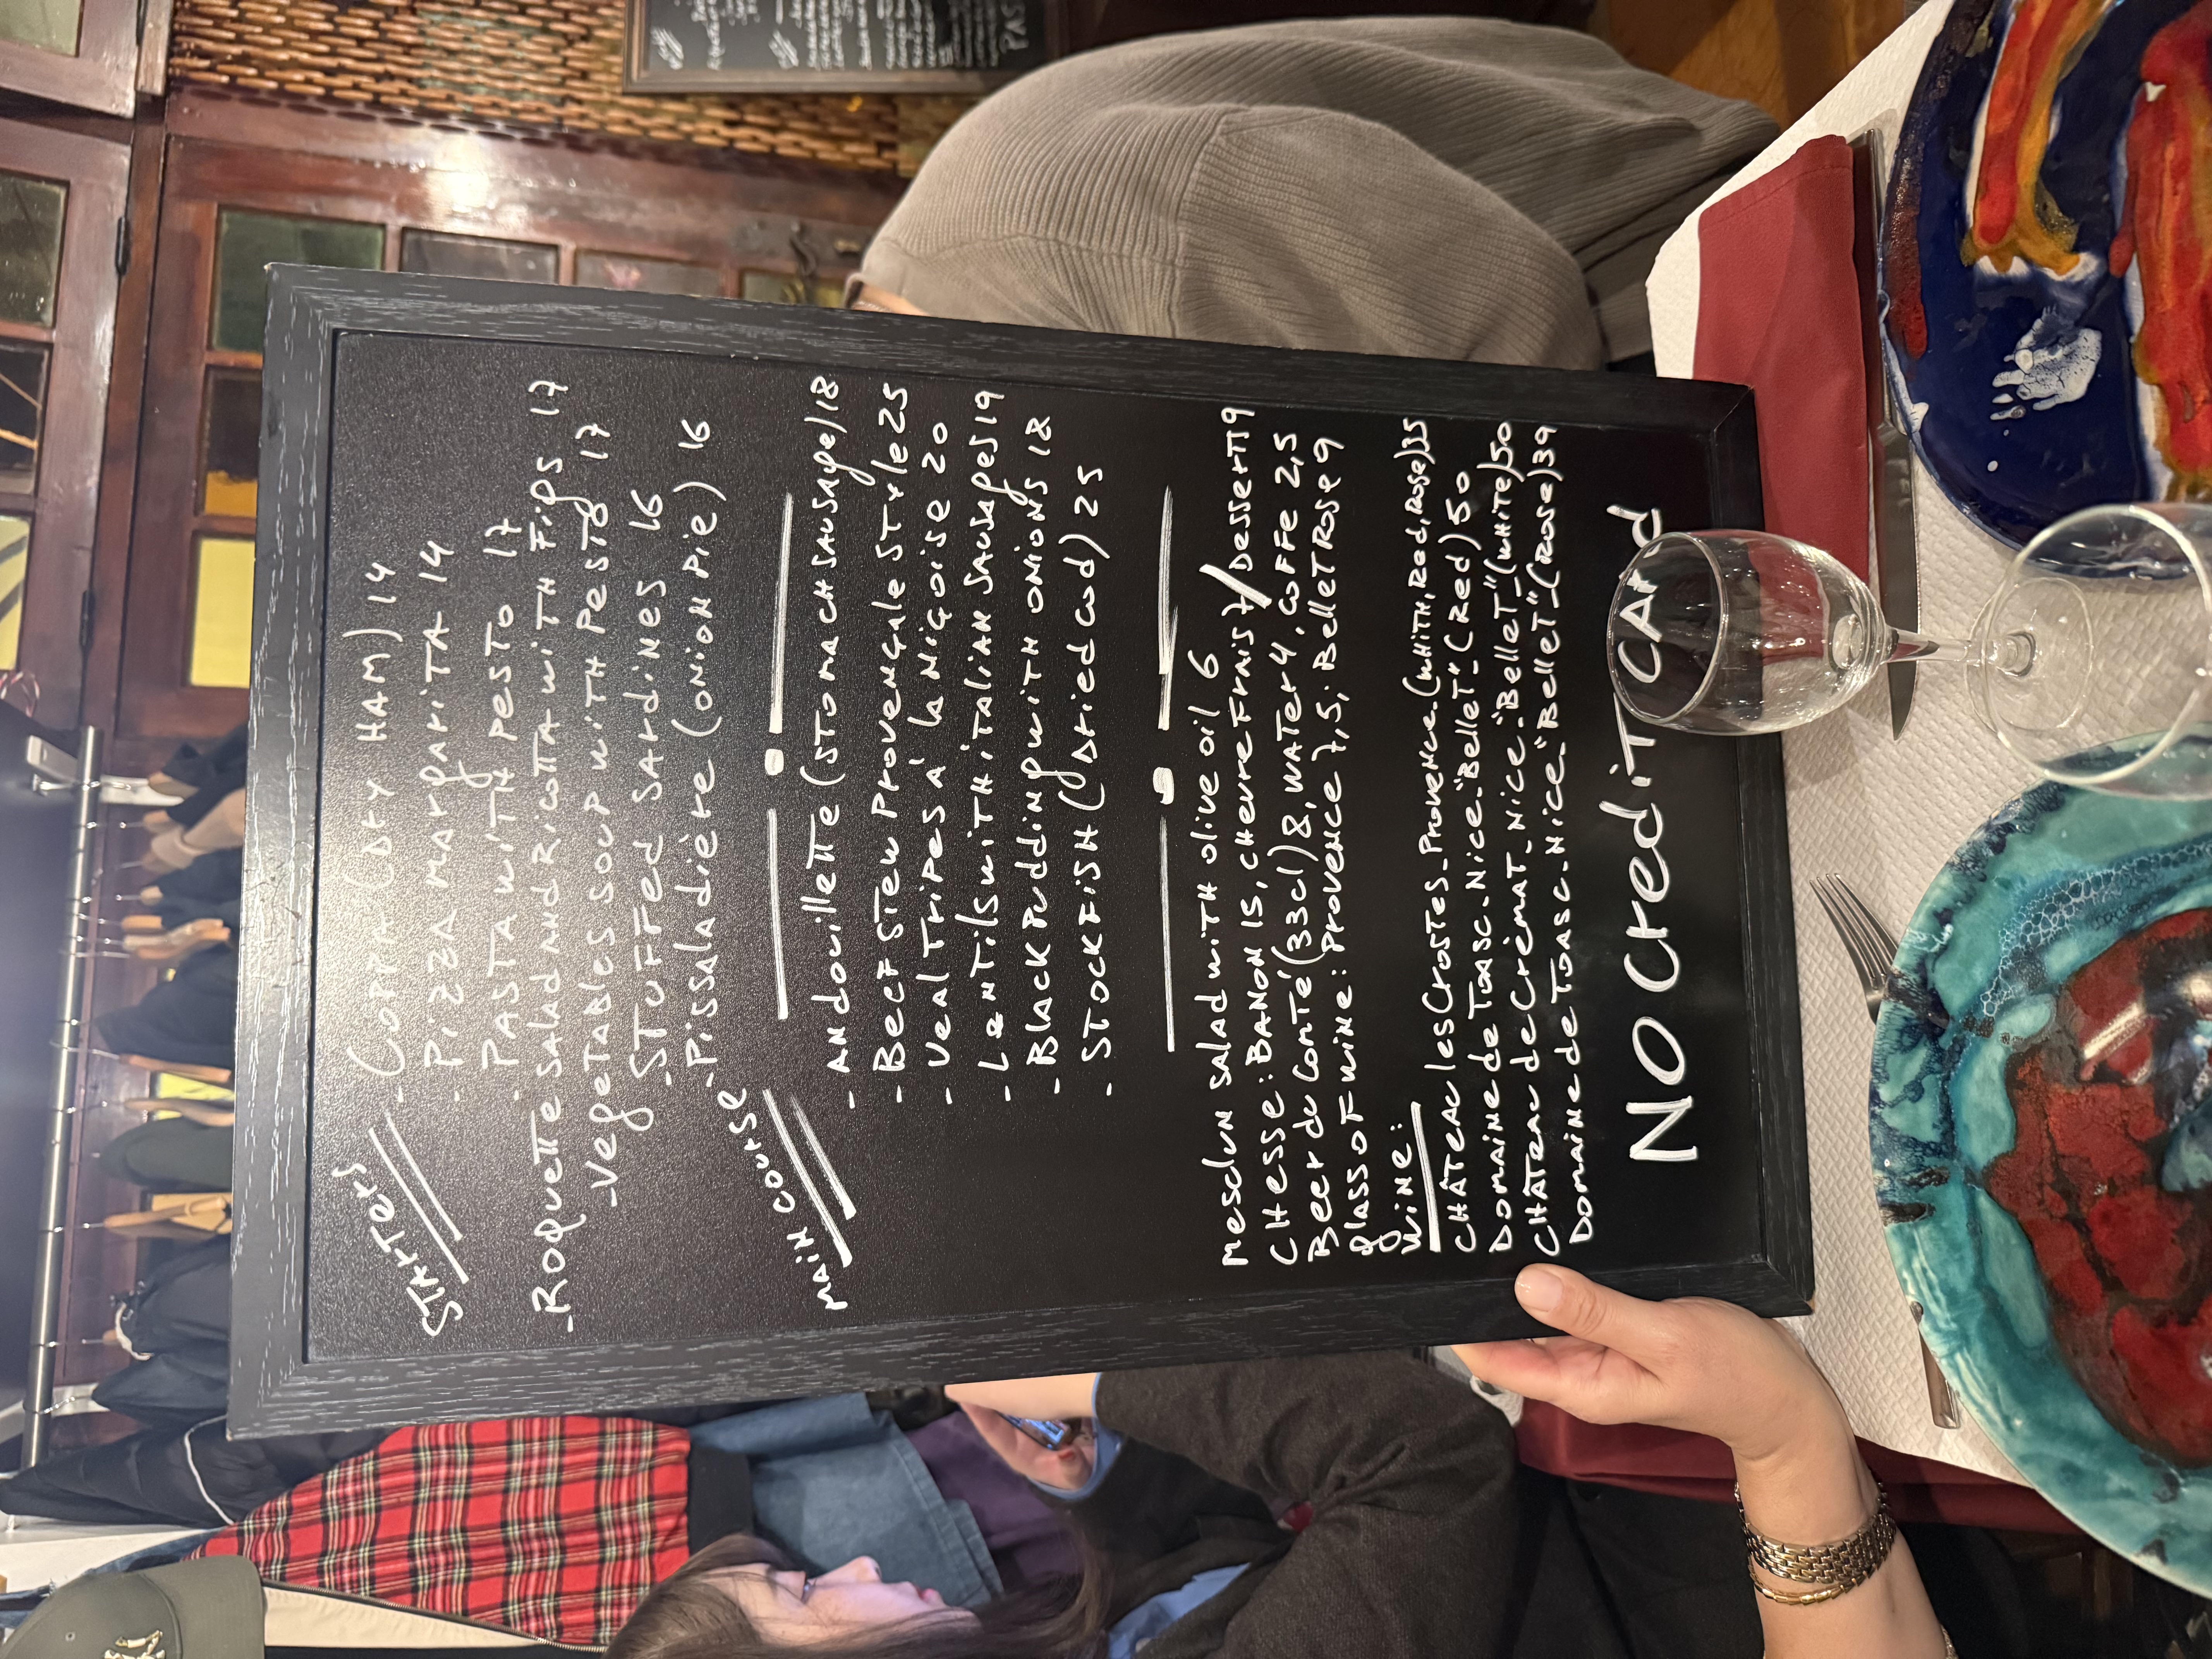 STARTERS
- COPPA (DRY HAM) 14
- Pizza Margarita 14
- PASTA with PesTO 17
- Roquette SALAD AND RicoTTA wiTH Figs 17
- VegeTABLES SOUP wiTH PesTO 17
- STUFFed SARDINES 16
- Pissaladière (ONION Pie) 16
MAIN COURSE
- ANDouillette (STOMACH SAUSAGE) 18
- Beef STew Provençale STyle 25
- Veal Tripes à la Niçoise 20
- Lentils wiTH iTALIAN SAUSAGES 19
- Black Pudding wiTH ONIONS 18
- STOCKFISH (DRied cod) 25
Mesclun SALAD wiTH olive oil 6
CHesse: BANON 15, CHevre Frais 7 / DesserT 9
Beer du ComTé (33cl) 8, WATer 4, Coffe 2,5
glass of wine: Provence 7,5; BelleT Rose 9
WINE:
CHÂTeau les CrosTes - Provence (WHITH, Red, Rose) 35
DomaiNe de ToAsc - Nice - "BelleT" - (Red) 50
CHÂTeau de CrèmAT - Nice - "BelleT" - (WHITE) 50
DomaiNe de ToAsc - Nice - "BelleT" - (Rose) 39
NO CrediT CArd